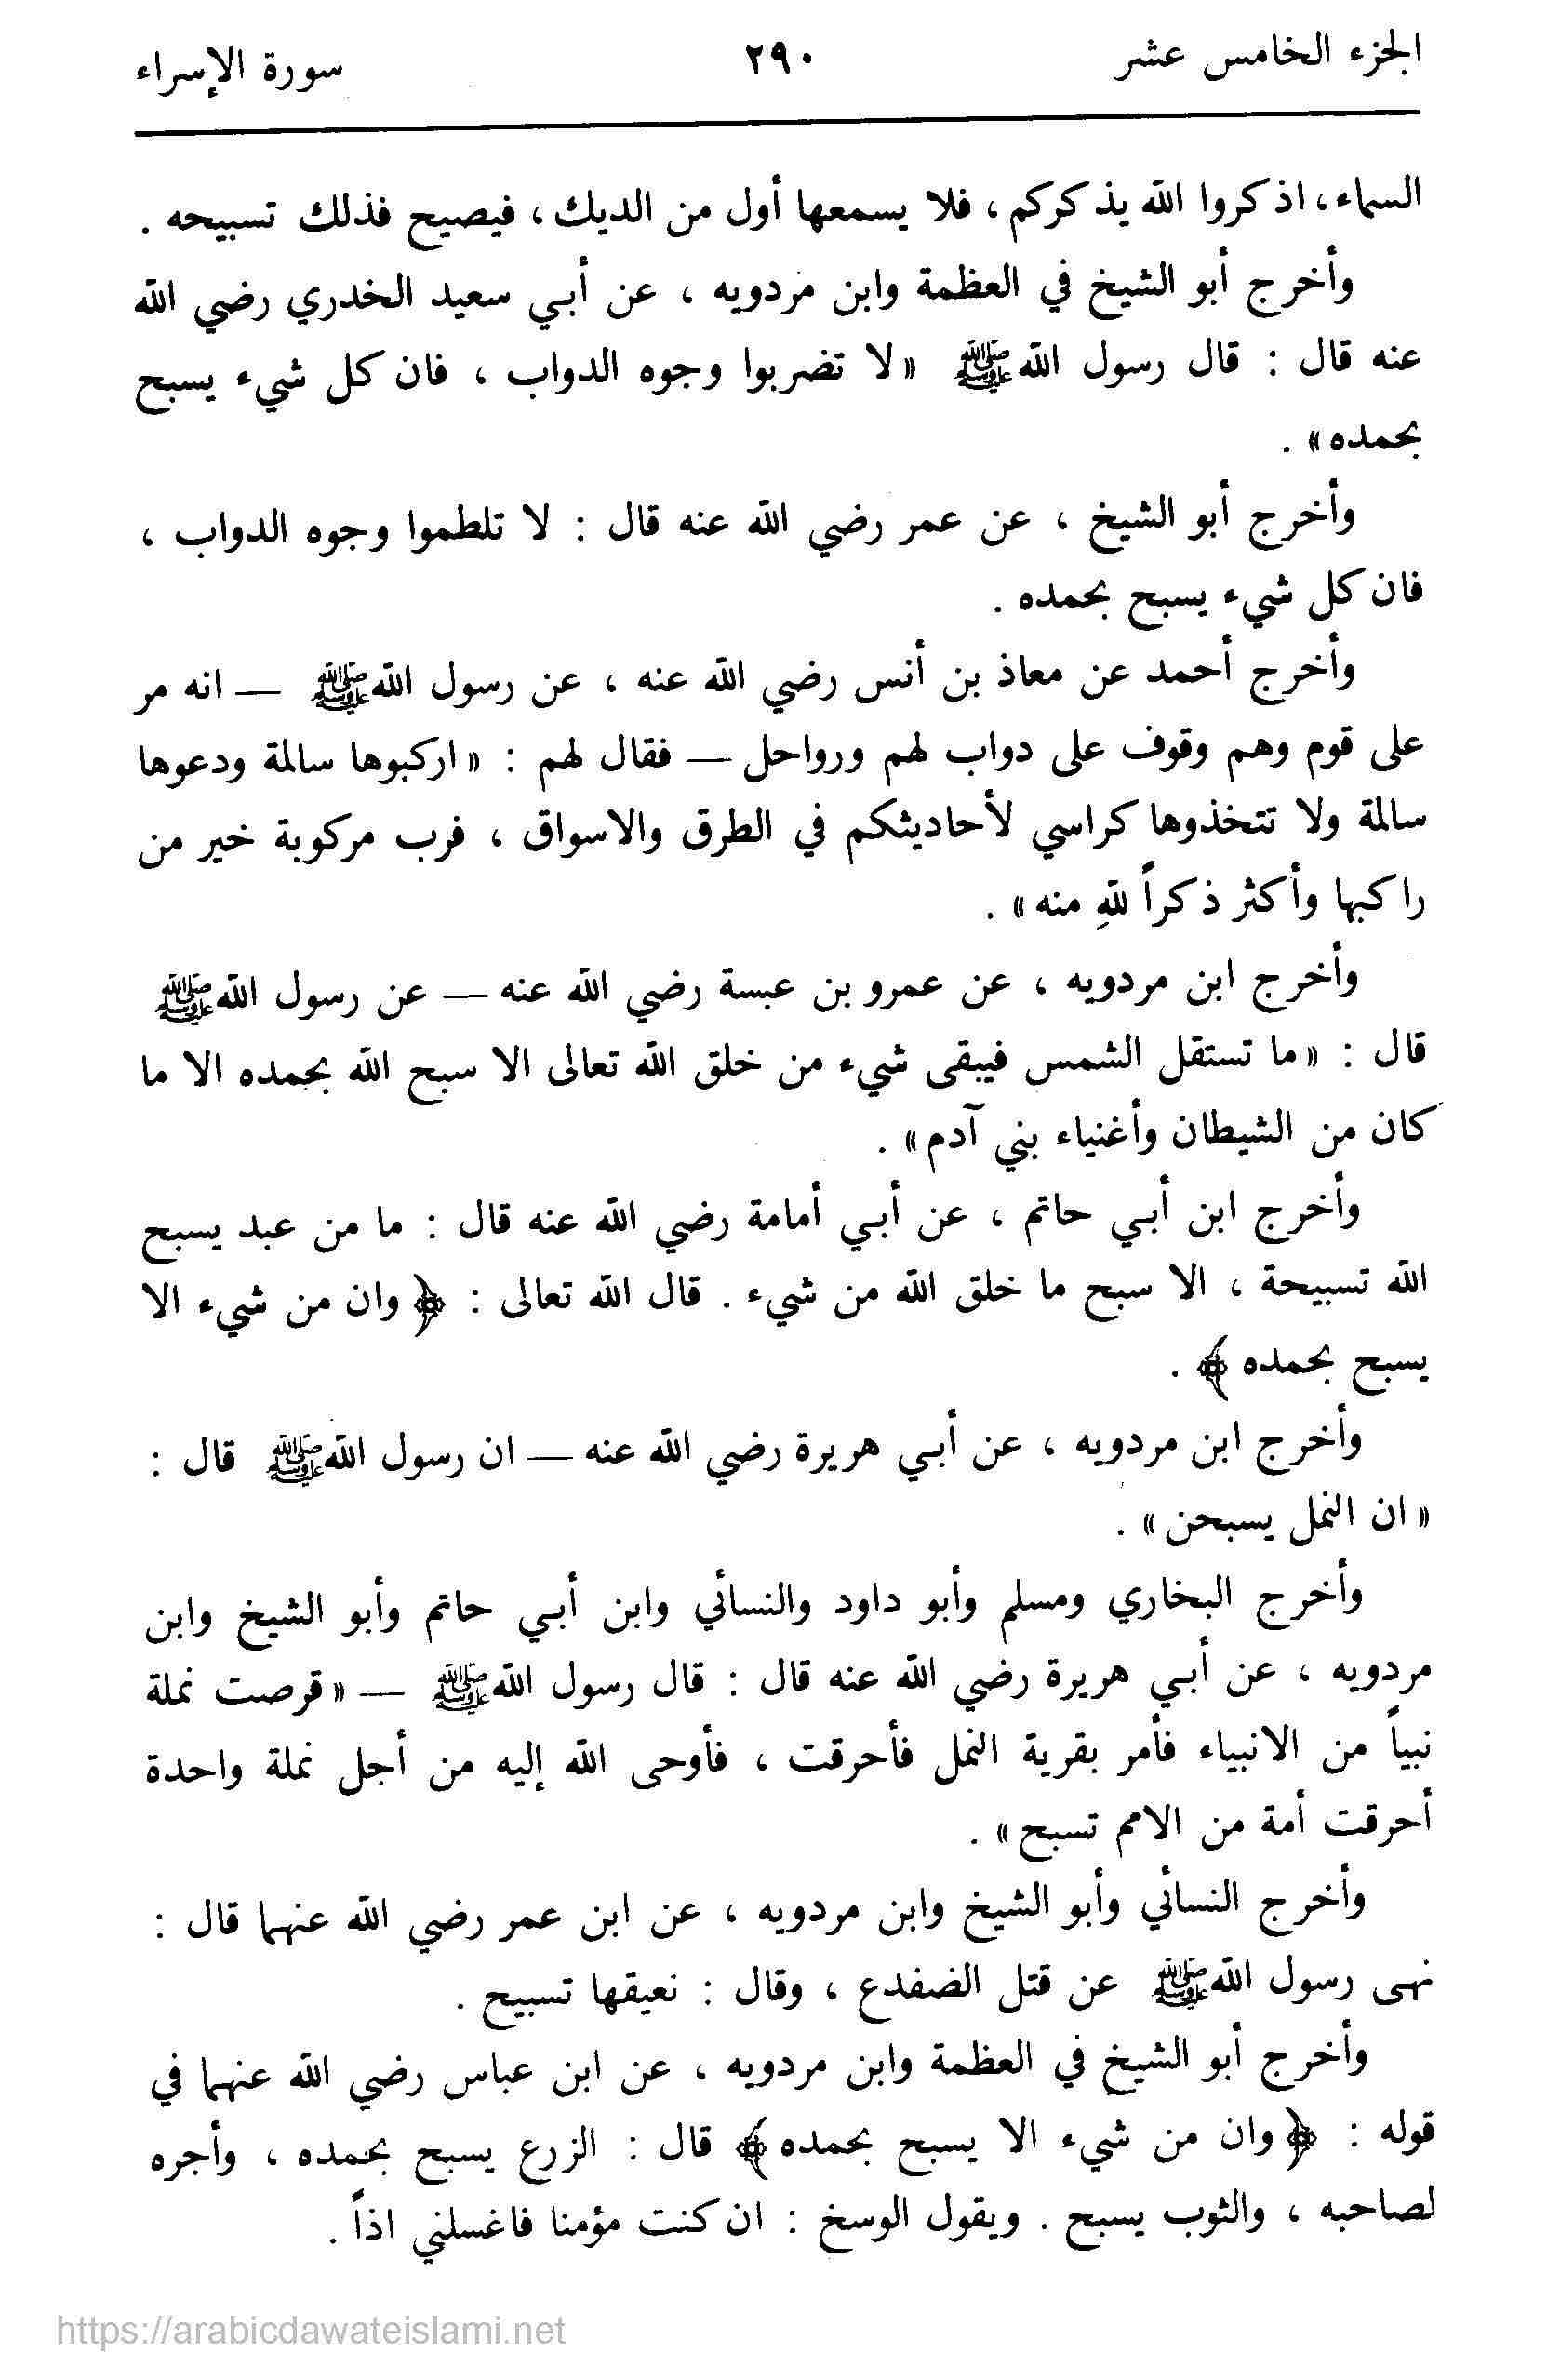 الجزء الخامس عشر ٢٩٠ سورة الإسراء
السماء، اذكروا الله يذكركم، فلا يسمعها أول من الديك، فيصيح فذلك تسبيحه .
وأخرج أبو الشيخ في العظمة وابن مردويه ، عن أبي سعيد الخدري رضي الله
عنه قال : قال رسول الله ﷺ « لا تضربوا وجوه الدواب ، فان كل شيء يسبح
بحمده» .
وأخرج أبو الشيخ ، عن عمر رضي الله عنه قال : لا تلطموا وجوه الدواب ،
فان كل شيء يسبح بحمده .
وأخرج أحمد عن معاذ بن أنس رضي الله عنه ، عن رسول الله ﷺ — انه مر
على قوم وهم وقوف على دواب لهم ورواحل — فقال لهم : « اركبوها سالمة ودعوها
سالمة ولا تتخذوها كراسي لأحاديثكم في الطرق والاسواق ، فرب مركوبة خير من
راكبها وأكثر ذكراً للهِ منه» .
وأخرج ابن مردويه ، عن عمرو بن عبسة رضي الله عنه — عن رسول الله ﷺ
قال : « ما تستقل الشمس فيبقى شيء من خلق الله تعالى الا سبح الله بحمده الا ما
كان من الشيطان وأغنياء بني آدم» .
وأخرج ابن أبي حاتم ، عن أبي أمامة رضي الله عنه قال : ما من عبد يسبح
الله تسبيحة ، الا سبح ما خلق الله من شيء . قال الله تعالى : ﴿ وان من شيء الا
يسبح بحمده ﴾ .
وأخرج ابن مردويه ، عن أبي هريرة رضي الله عنه — ان رسول الله ﷺ قال :
« ان النمل يسبحن» .
وأخرج البخاري ومسلم وأبو داود والنسائي وابن أبي حاتم وأبو الشيخ وابن
مردويه ، عن أبي هريرة رضي الله عنه قال : قال رسول الله ﷺ — « قرصت نملة
نبياً من الانبياء فأمر بقرية النمل فأحرقت ، فأوحى الله إليه من أجل نملة واحدة
أحرقت أمة من الامم تسبح» .
وأخرج النسائي وأبو الشيخ وابن مردويه ، عن ابن عمر رضي الله عنهما قال :
نهى رسول الله ﷺ عن قتل الضفدع ، وقال : نعيقها تسبيح .
وأخرج أبو الشيخ في العظمة وابن مردويه ، عن ابن عباس رضي الله عنهما في
قوله : ﴿ وان من شيء الا يسبح بحمده ﴾ قال : الزرع يسبح بحمده ، وأجره
لصاحبه ، والثوب يسبح . ويقول الوسخ : ان كنت مؤمنا فاغسلني اذاً .
https://arabicdawateislami.net